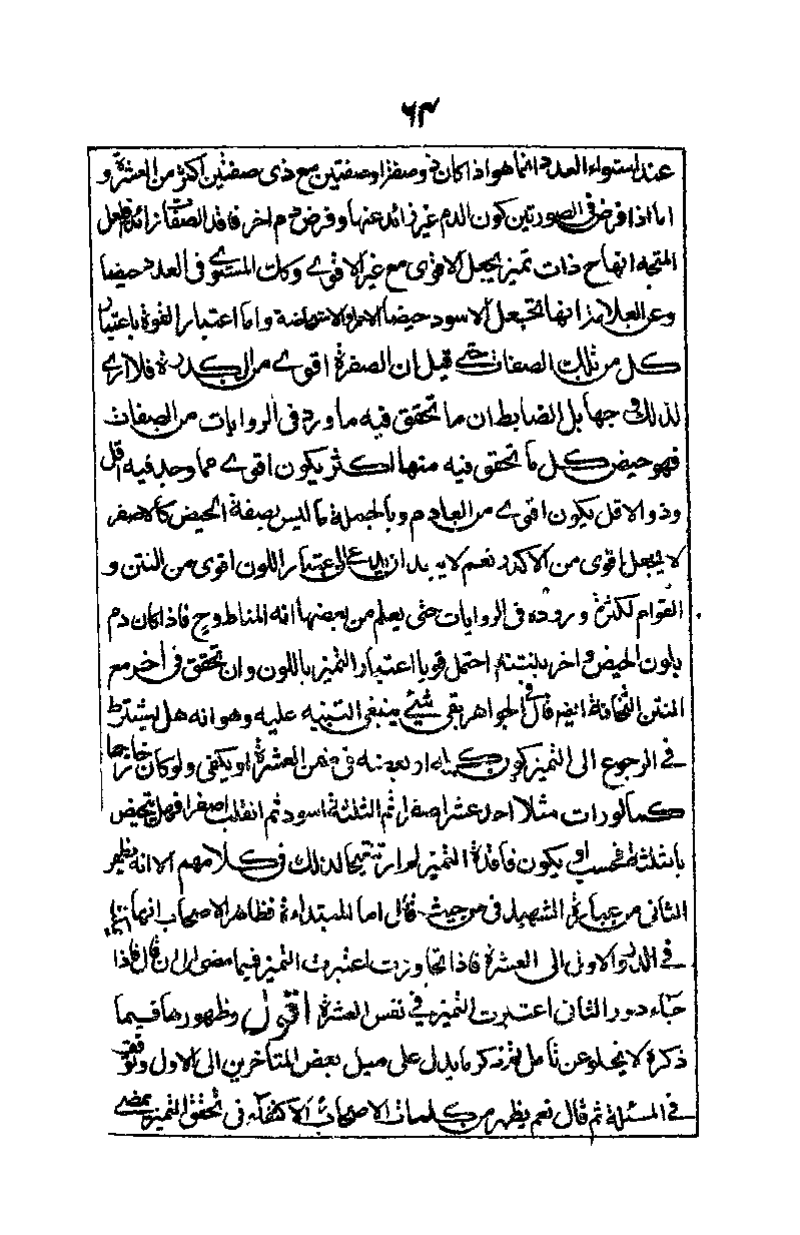 ٦٣
عند استواء العدد انما هو اذا كان ذو صفة او صفتين مع ذى صفتين اكثر من العشرة و
اما اذا فرض فى الصورتين كون الدم غير زائد عنها وفرض دم اخر فاقد الصفات زائد فلعل
المتجه انها ح ذات تميز يجعل الاقوى مع غير الاقوى وكان المستوى فى العدد حيضا
وعن العلامة انها تجعل الاسود حيضا الاحمر والاستحاضة واما اعتبار القوة باعتبار
كل من تلك الصفات حتى قيل ان الصفرة اقوى من الكدرة فلا ارى
لذلك وجها بل الضابط ان ما تحقق فيه ما ورد فى الروايات من الصفات
فهو حيض كل ما تحقق فيه منها اكثر يكون اقوى مما وجد فيه اقل
وذو الاقل يكون اقوى من العادم وبالجملة ما ليس بصفة الحيض كالاصفر
لا يجعل اقوى من الاكدر نعم لا يبعد ان اعتبار اللون اقوى من النتن و
القوام لكثرة وروده فى الروايات حتى يعلم من بعضها انه المناط وح فاذا كان دم
بلون الحيض واخر بنتنه احتمل قويا اعتبار التميز باللون وان تحقق فى اخر مع
النتن الثخانة ايضا قال فى الجواهر بقى شئ ينبغى التنبيه عليه وهو انه هل يشترط
فى الرجوع الى التميز كون كله او بعضه فى ضمن العشرة او يكفى ولو كان خارجها
كما لو رات مثلا احد عشر اصفر ثم الثلثة اسود ثم انقلب اصفر فهل تتحيض
بالثلثة فحسب او يكون فاقدة التميز لم ار تنقيحا لذلك فى كلامهم الا انه يظهر
الثانى من عبارة الشهيد فى حيث قال اما المبتداة فظاهر الاصحاب انها
فى الدور الاول الى العشرة فاذا تجاوزت اعتبرت التميز فيما مضى الى ان قال فاذا
جاء دور الثانى اعتبرت التميز فى نفس العشرة اقول وظهورها فيما
ذكره لا يخلو عن تامل ثم ذكر ما يدل على ميل بعض المتاخرين الى الاول وتوقف
فى المسئلة ثم قال نعم يظهر من كلمات الاصحاب الاكتفاء فى تحقق التميز بمضى